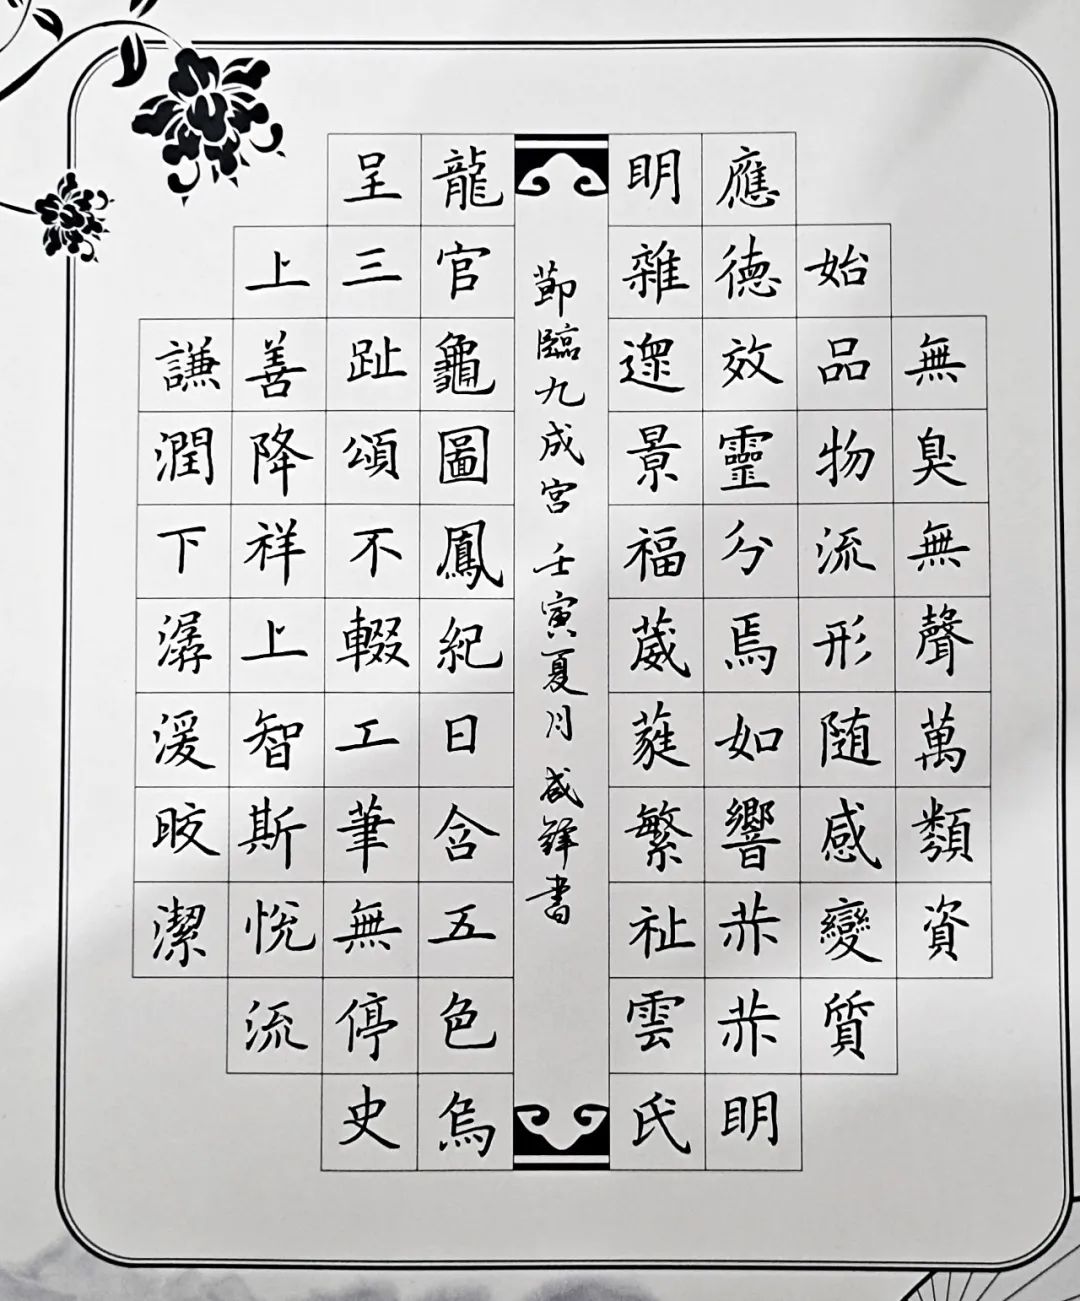 無臭無聲萬類資
始品物流形随感變質
應德效靈介焉如響赫赫明
明雜遝景福葳蕤繁祉雲氏
節臨九成宫 壬寅夏月 咸鋒書
龍官龜圖鳳紀日含五色烏
呈三趾頌不輟工筆無停史
上善降祥上智斯悅流
謙潤下潺湲皎潔